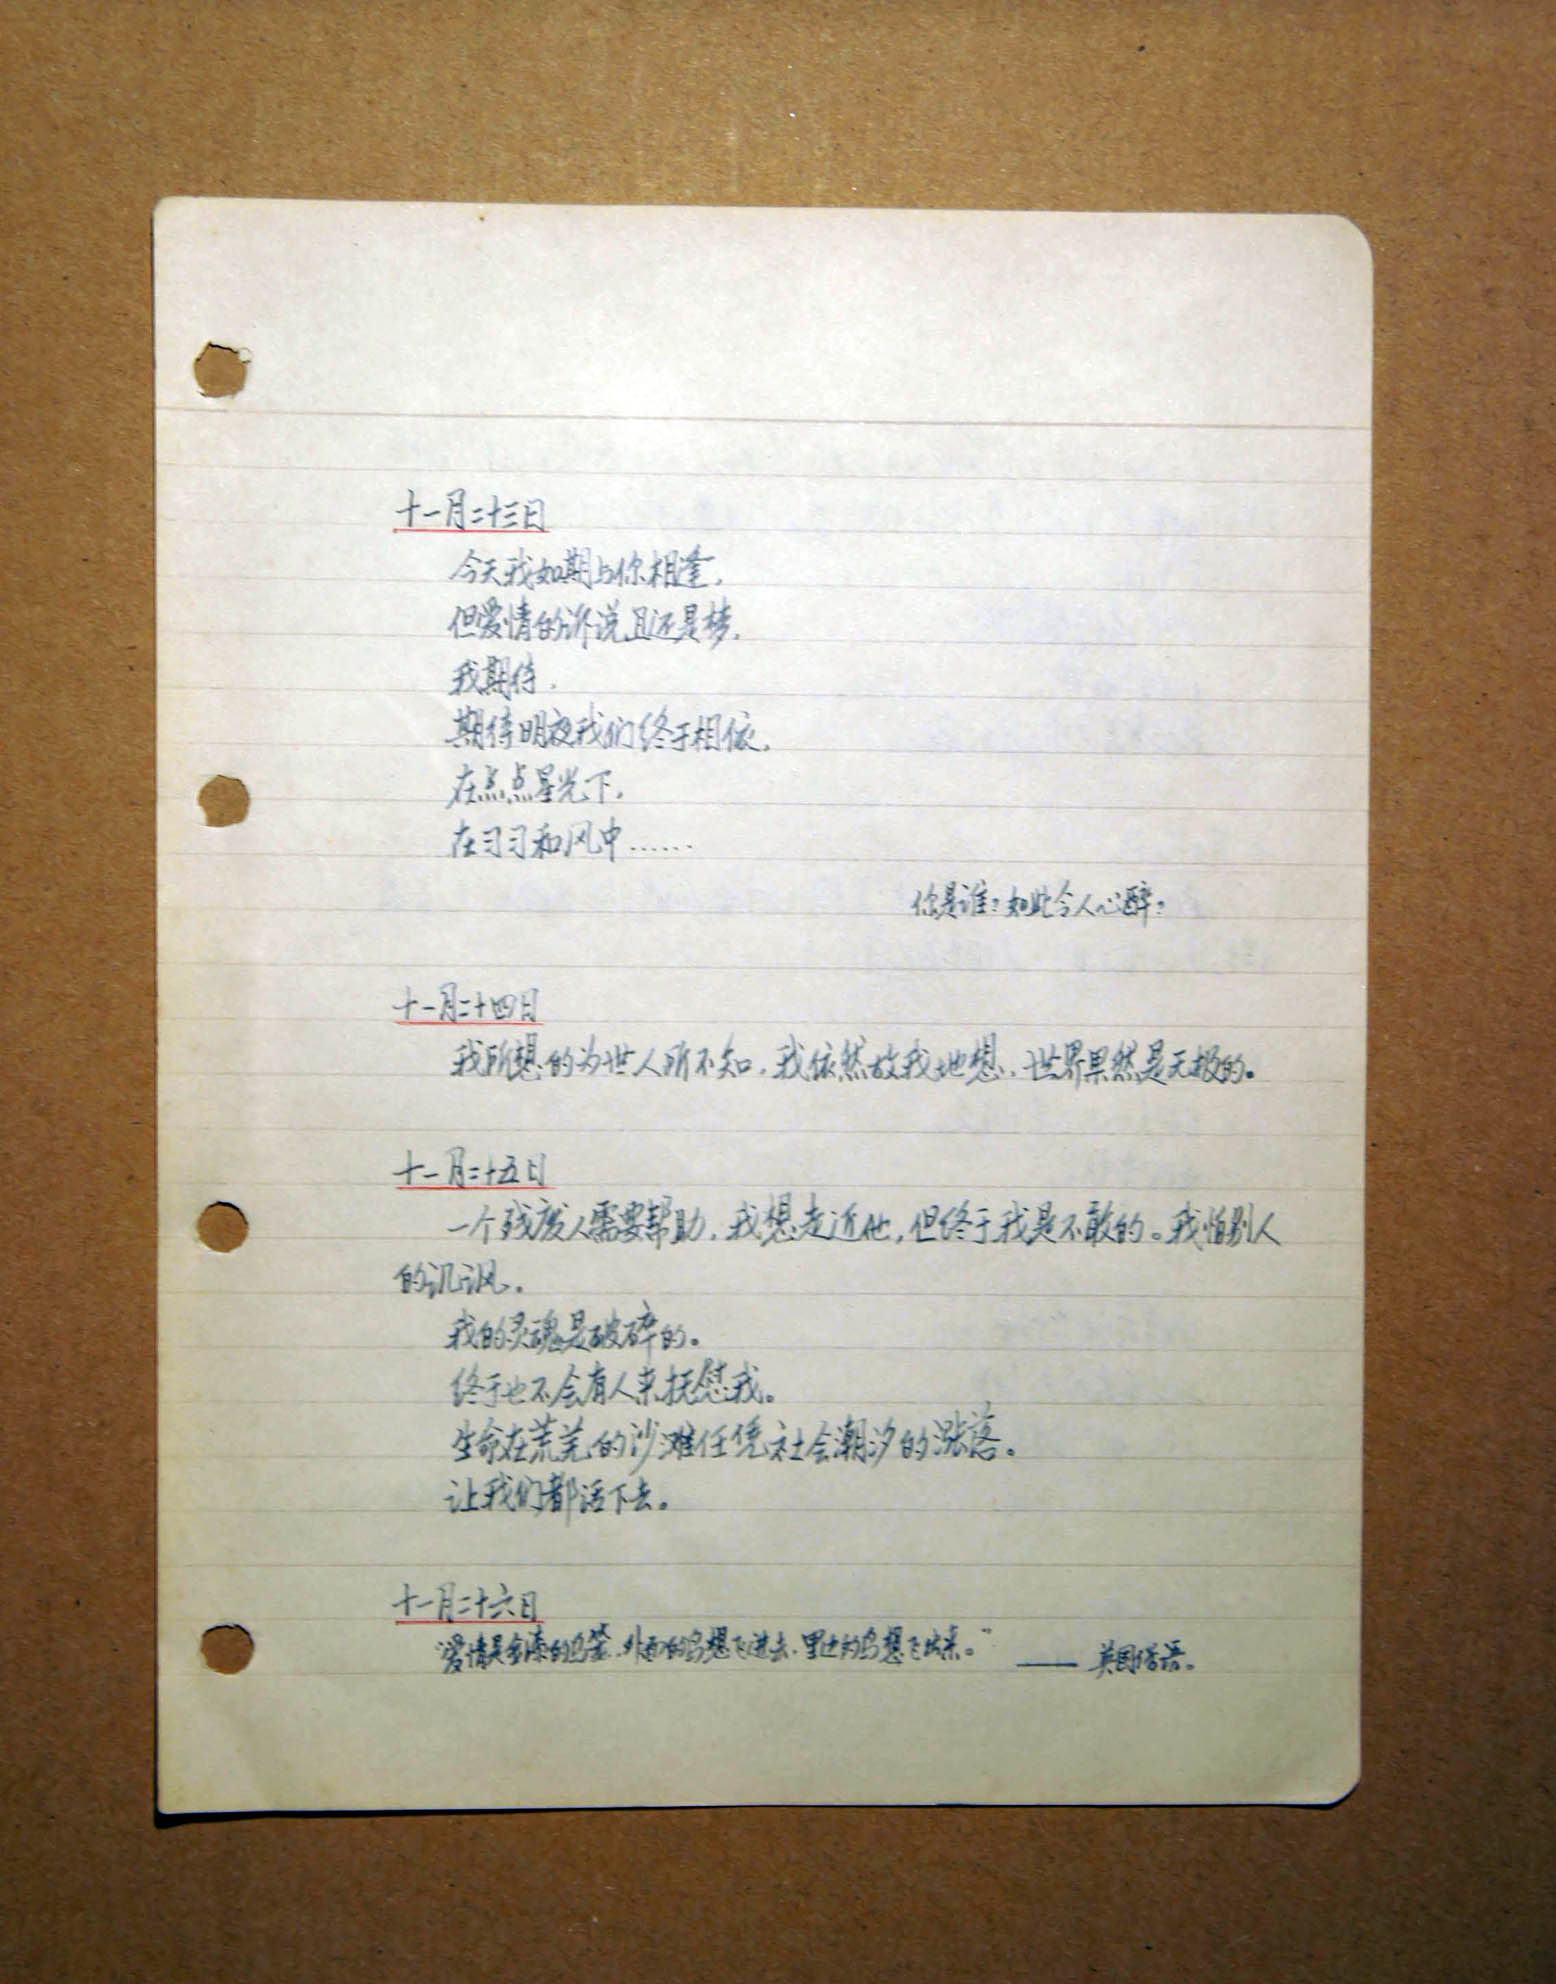 十一月二十三日
今天我如期与你相逢，
但爱情的诉说且还是梦，
我期待，
期待明夜我们终于相依，
在点点星光下，
在习习和风中……
你是谁？如此令人心醉？
十一月二十四日
我所想的为世人所不知，我依然故我地想，世界果然是无极的。
十一月二十五日
一个残废人需要帮助，我想走近他，但终于我是不敢的。我怕别人
的讥讽。
我的灵魂是破碎的。
终于也不会有人来抚慰我。
生命在荒芜的沙滩任凭社会潮汐的涨落。
让我们都活下去。
十一月二十六日
“爱情是金漆的鸟笼，外面的鸟想飞进去，里边的鸟想飞出来。” —— 英国俗语。